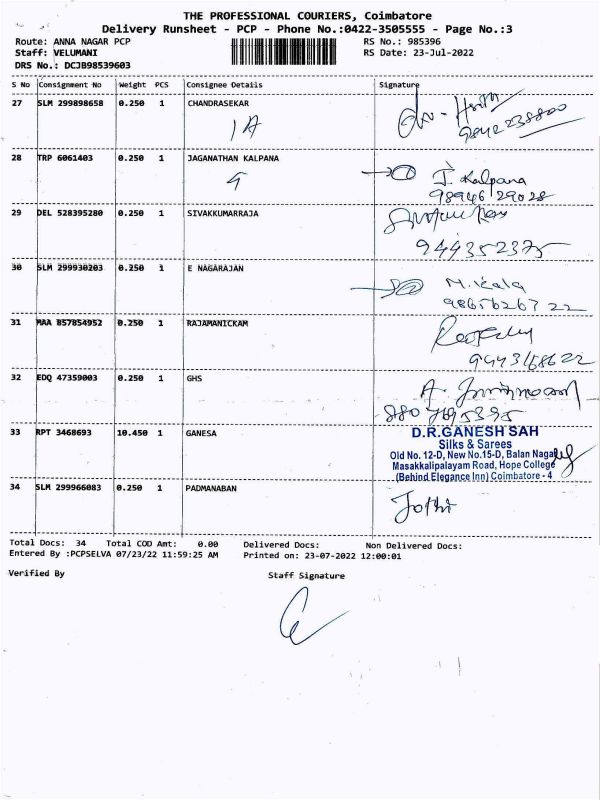 THE PROFESSIONAL COURIERS, Coimbatore
Delivery Runsheet - PCP - Phone No.:0422-3505555 - Page No.:3
Route: ANNA NAGAR PCP RS No.: 985396
Staff: VELUMANI RS Date: 23-Jul-2022
DRS No.: DCJB98539603
S No Consignment No Weight PCS Consignee Details Signature
27 SLM 299898658 0.250 1 CHANDRASEKAR
1A 9842238800
28 TRP 6061403 0.250 1 JAGANATHAN KALPANA
J. Kalpana
9894629028
29 DEL 528395280 0.250 1 SIVAKKUMARRAJA
944352375
30 SLM 299930203 0.250 1 E NAGARAJAN
M. Kala
31 MAA 857854952 0.250 1 RAJAMANICKAM
32 EDQ 47359003 0.250 1 GHS
33 RPT 3468693 10.450 1 GANESA
D.R.GANESH SAH
Silks & Sarees
Old No. 12-D, New No.15-D, Balan Nagar
Masakkalipalayam Road, Hope College
(Behind Elegance Inn) Coimbatore - 4
34 SLM 299966083 0.250 1 PADMANABAN
Jothi
Total Docs: 34 Total COD Amt: 0.00 Delivered Docs: Non Delivered Docs:
Entered By :PCPSELVA 07/23/22 11:59:25 AM Printed on: 23-07-2022 12:00:01
Verified By Staff Signature